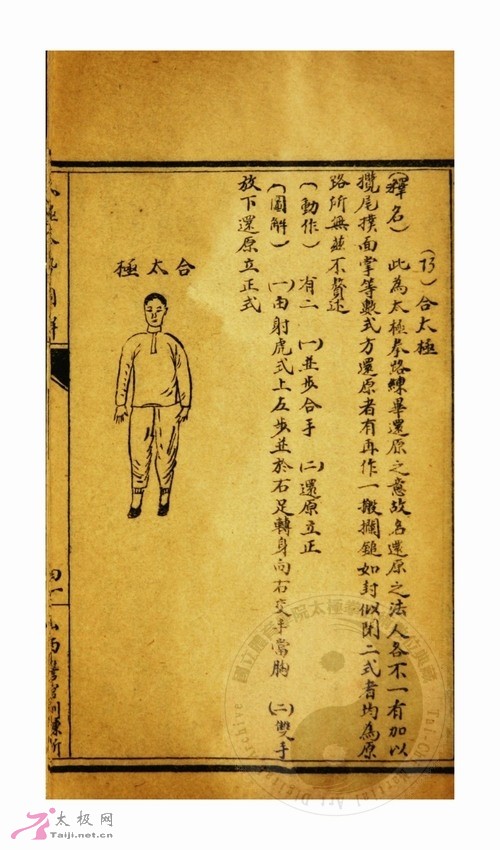 (73)合太極
(釋名) 此為太極拳路練畢還原之意故名還原之法人各不一有加以
攬尾撲面掌等數式方還原者有再作一搬攔鎚如封似閉二式者均為原
路所無茲不贅述
(動作) 有二 (一)並步合手 (二)還原立正
(圖解) (一)由射虎式上左步並於右足轉身向右交手當胸 (二)雙手
放下還原立正式
合太極
太極网
Taiji.net.cn